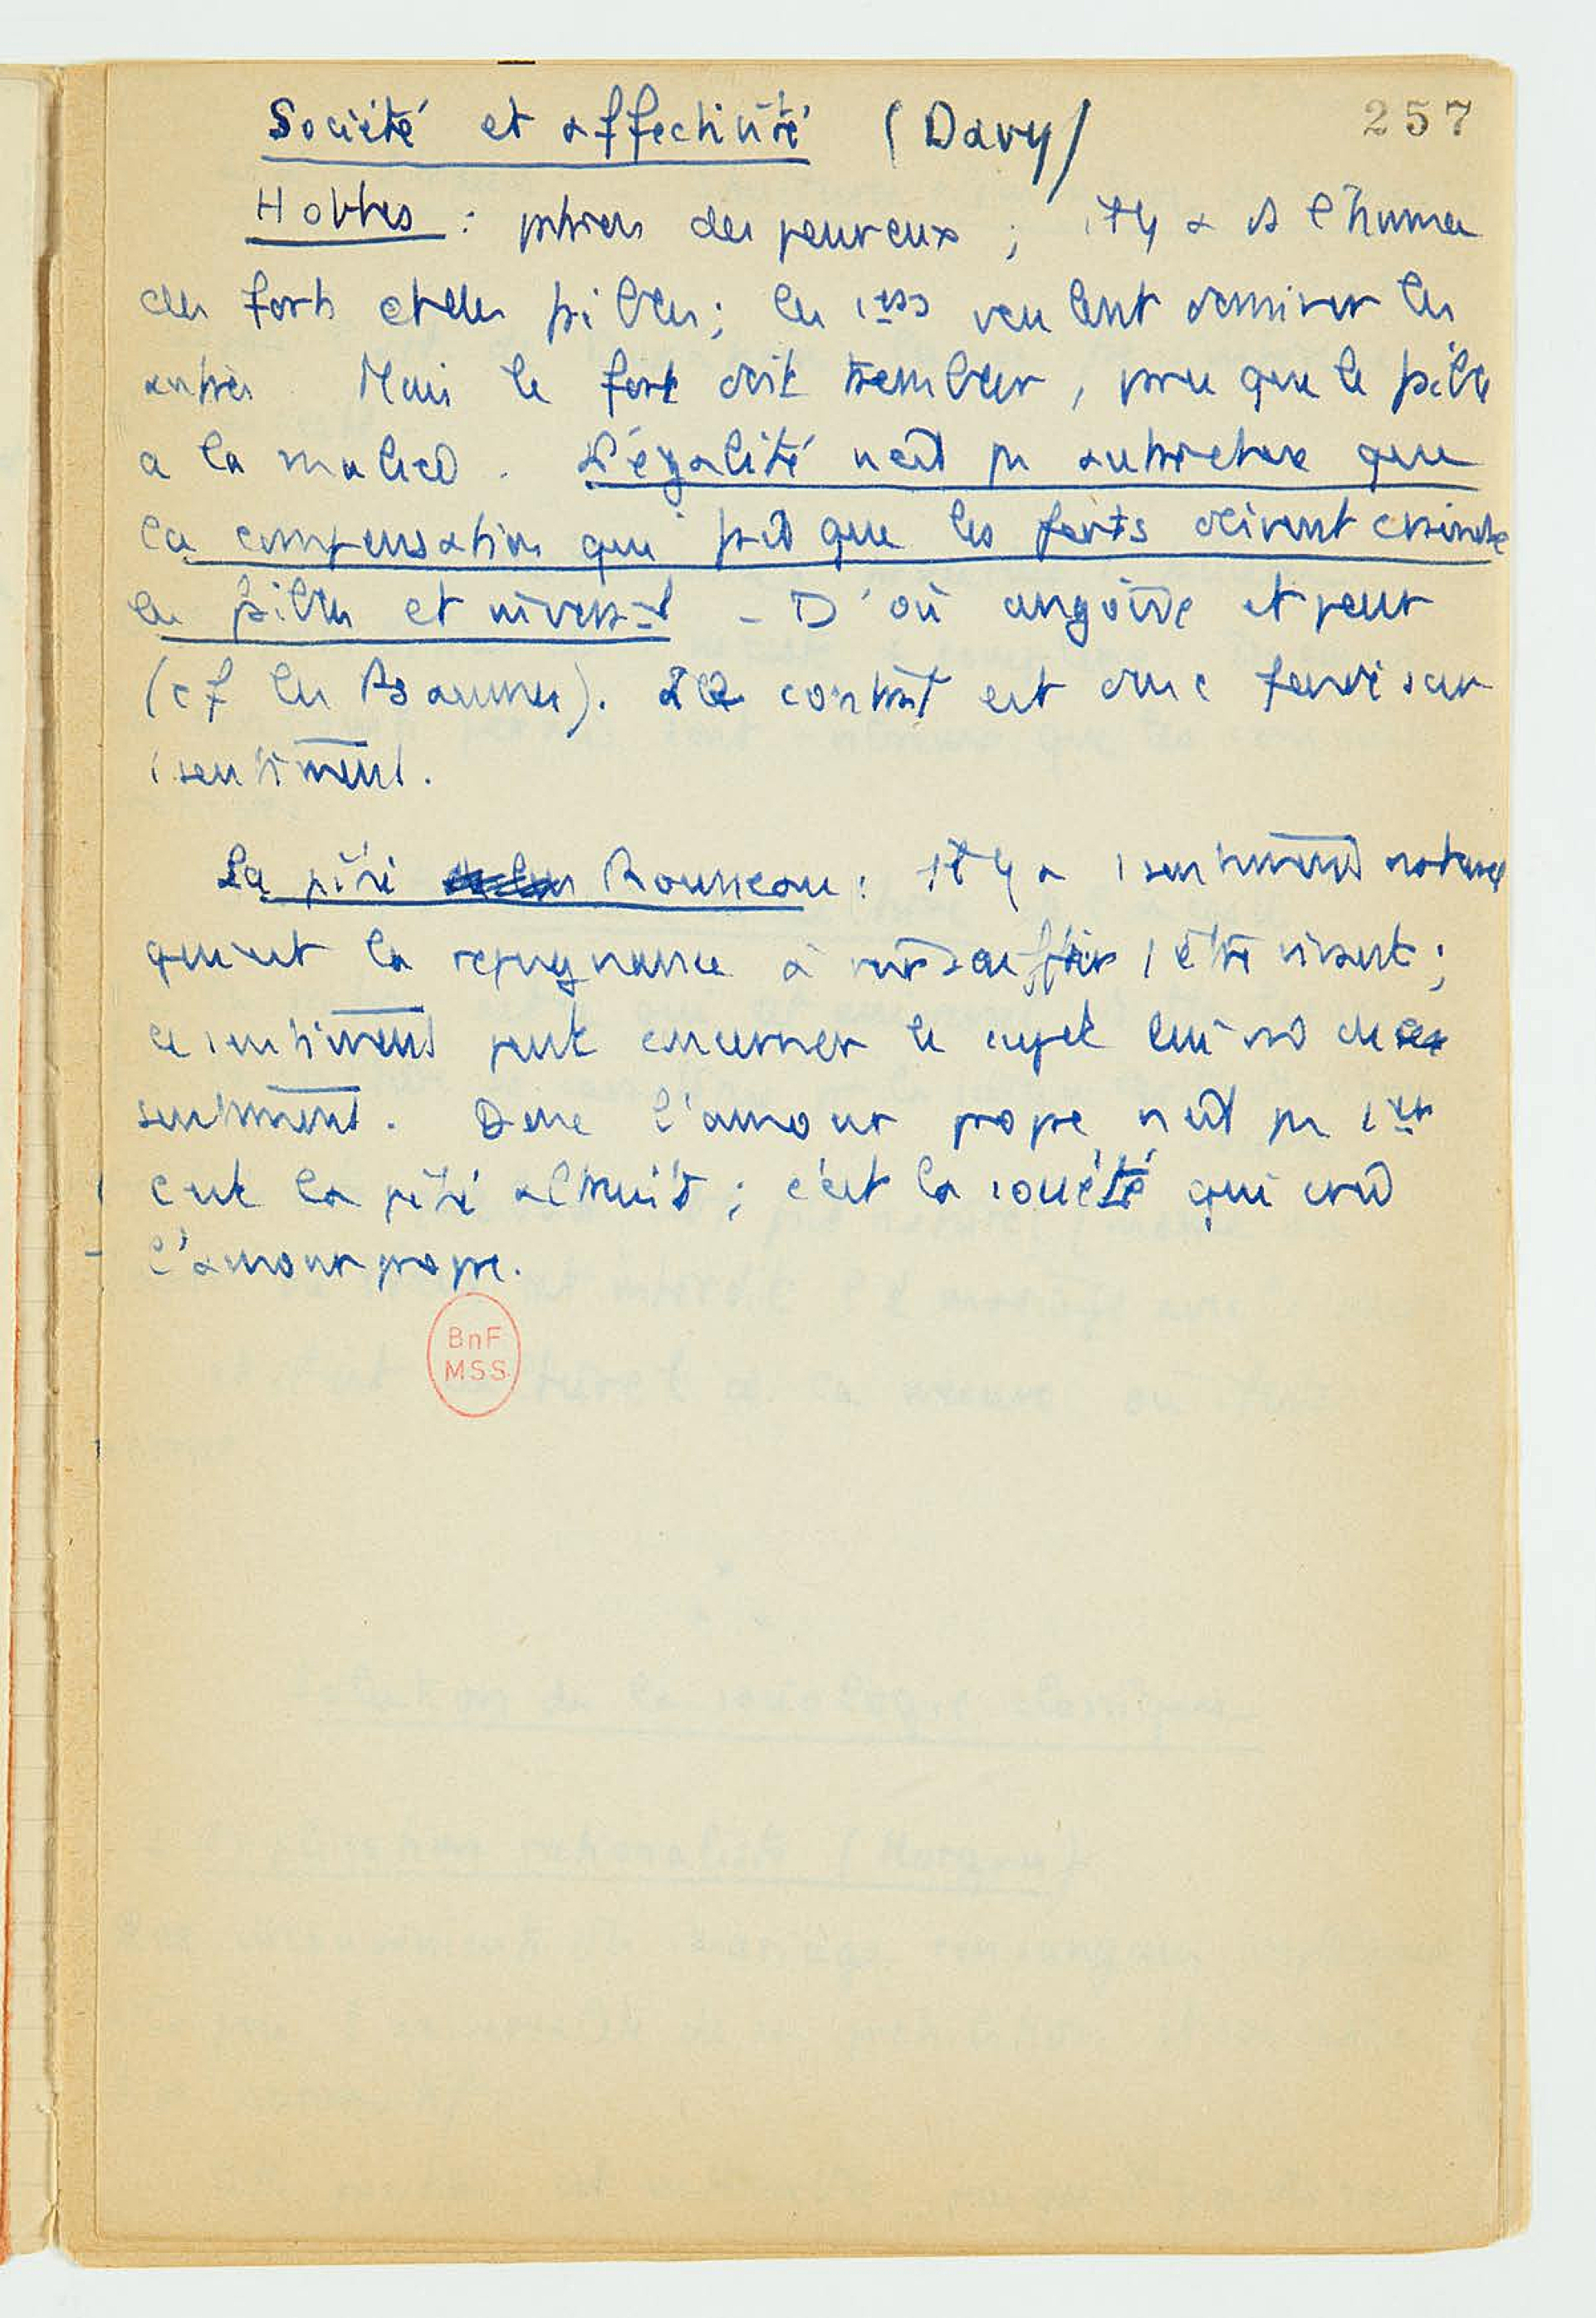 Société et affectivité (Davy)
257
Hobbes : des peureux ; il y a ds l'human
des forts et des faibles ; les 1ers veulent dominer les
autres Mais le fort doit trembler, parce que le faible
a la malice. L'égalité n'est pr autre chose que
la compensation qui fait que les forts doivent craindre
les faibles et
- D'où angoisse et peur
(cf les Baumes). Le contrat est donc fondé sur
1 sentiment.
La pitié Rousseau : il y a 1 sentiment naturel
qui est la repugnance à voir souffrir 1 être vivant ;
ce sentiment peut concerner le sujet lui de ce
sentiment. Donc l'amour propre n'est pas 1er
c'est la pitié altruiste ; c'est la société qui crée
l'amour propre.
BnF
MSS